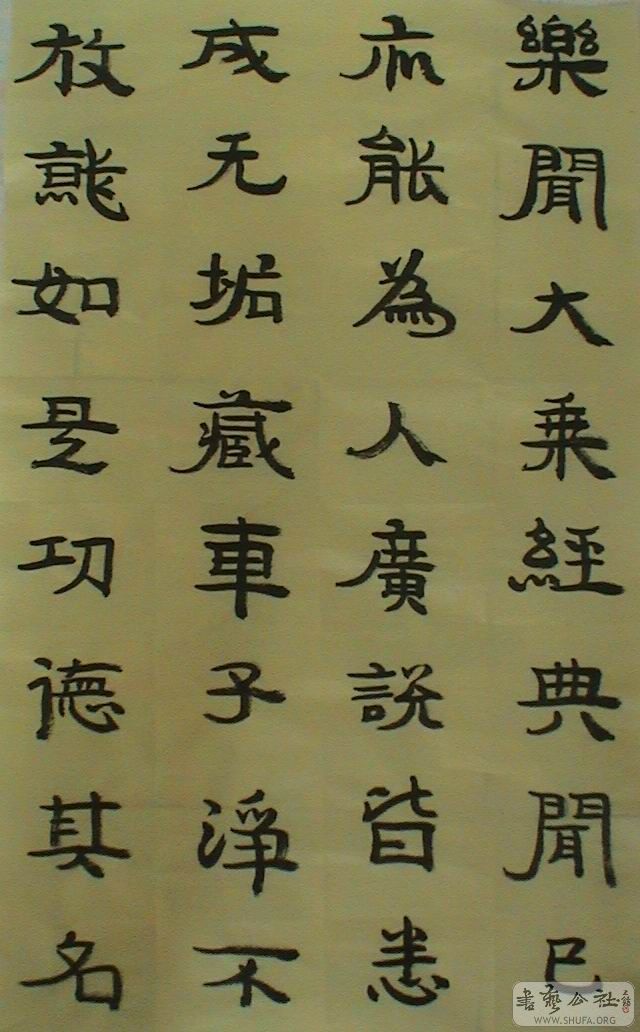 樂聞大乗經典聞已
亦能為人廣說皆悉
成无垢藏車子淨不
放熊如是功德其名
書藝公社
WWW.SHUFA.ORG